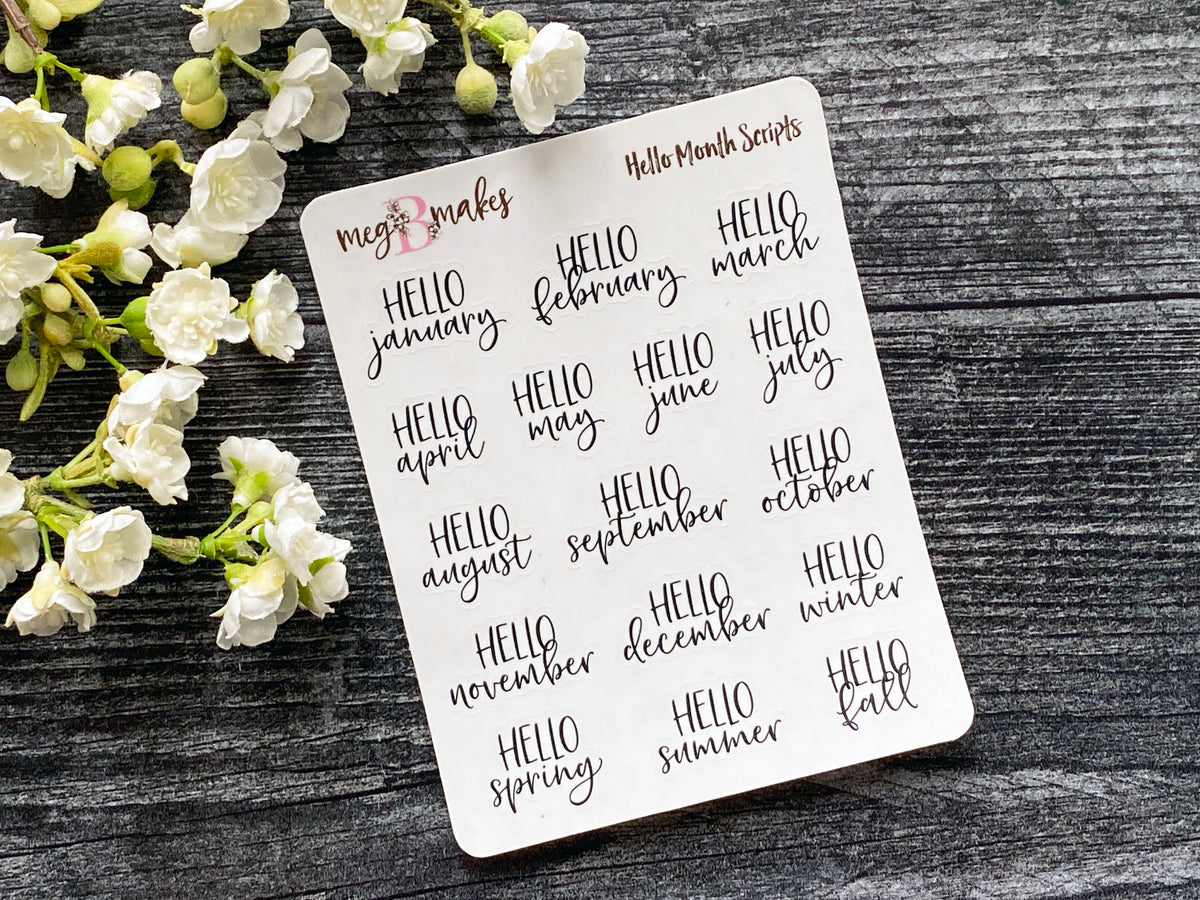 meg B makes
Hello Month Scripts
HELLO
january
HELLO
february
HELLO
march
HELLO
april
HELLO
may
HELLO
june
HELLO
july
HELLO
august
HELLO
september
HELLO
october
HELLO
november
HELLO
december
HELLO
winter
HELLO
spring
HELLO
summer
HELLO
fall